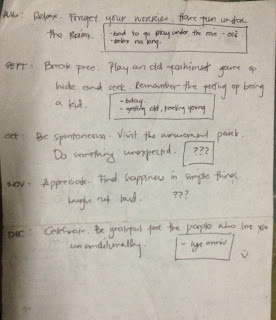 AUG: Relax. Forget your worries. Have fun under
the Rain.
- bad to go play under the rain - old
SEPT: Break free. Play an old fashioned game of
hide and seek. Remember the feeling of being
a kid.
- bday.
- getting old, feeling young
OCT: Be spontaneous. Visit the amusement park.
Do something unexpected. ???
NOV: Appreciate. Find happiness in simple things.
Laugh out loud. ???
DEC: Celebrate. Be grateful for the people who love you
unconditionally.